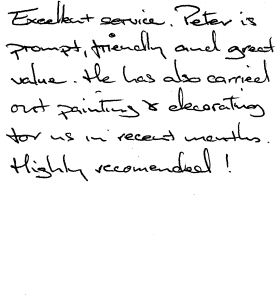 Excellent service. Peter is
prompt, friendly and great
value. He has also carried
out painting & decorating
for us in recent months.
Highly recomended!